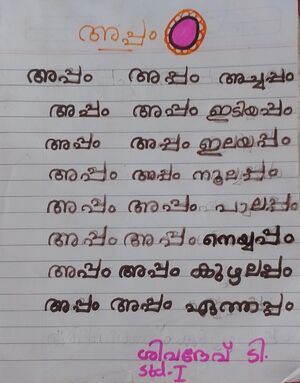 അപ്പം
അപ്പം അപ്പം അച്ചപ്പം
അപ്പം അപ്പം ഇടിയപ്പം
അപ്പം അപ്പം ഇലയപ്പം
അപ്പം അപ്പം നൂലപ്പം
അപ്പം അപ്പം പാലപ്പം
അപ്പം അപ്പം നെയ്യപ്പം
അപ്പം അപ്പം കുഴലപ്പം
അപ്പം അപ്പം ഏത്താപ്പം
ശിവദേവ് ടി.
Std-I